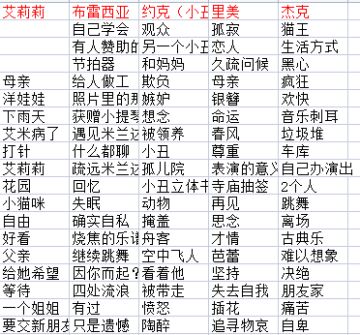 艾莉莉 布雷西亚 约克（小丑 里美 杰克
自己学会 观众 孤寂 猫王
有人赞助的 另一个小丑 恋人 生活方式
节拍器 和妈妈 久疏问候 黑心
母亲 给人做工 欺负 母亲 疯狂
洋娃娃 照片里的那 嫉妒 银簪 欢快
下雨天 获赠小提琴 想念 命运 音乐刺耳
艾米病了 遇见米兰达 被领养 春风 垃圾堆
打针 什么都聊 小丑 尊重 车库
艾莉莉 疏远米兰达 孤儿院 表演的意义 自己办演出
花园 回忆 小丑立体书 寺庙抽签 2个人
小猫咪 失眠 动物 再见 跳舞
自由 确实自私 掩盖 思念 离场
好看 烧焦的乐谱 舟客 才情 古典乐
父亲 继续跳舞 空中飞人 芭蕾 难以想象
给她希望 因你而起? 看着他 坚持 决绝
等待 四处流浪 被带走 失去自我 朋友家
一个姐姐 有过 愤怒 插花 痛苦
要交新朋友 只是遗憾 陶醉 追寻物哀 自卑